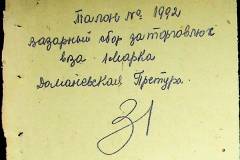 Талон № 1992
Базарный сбор за торговлю
вза 1 марка
Доманевская Претура.
31